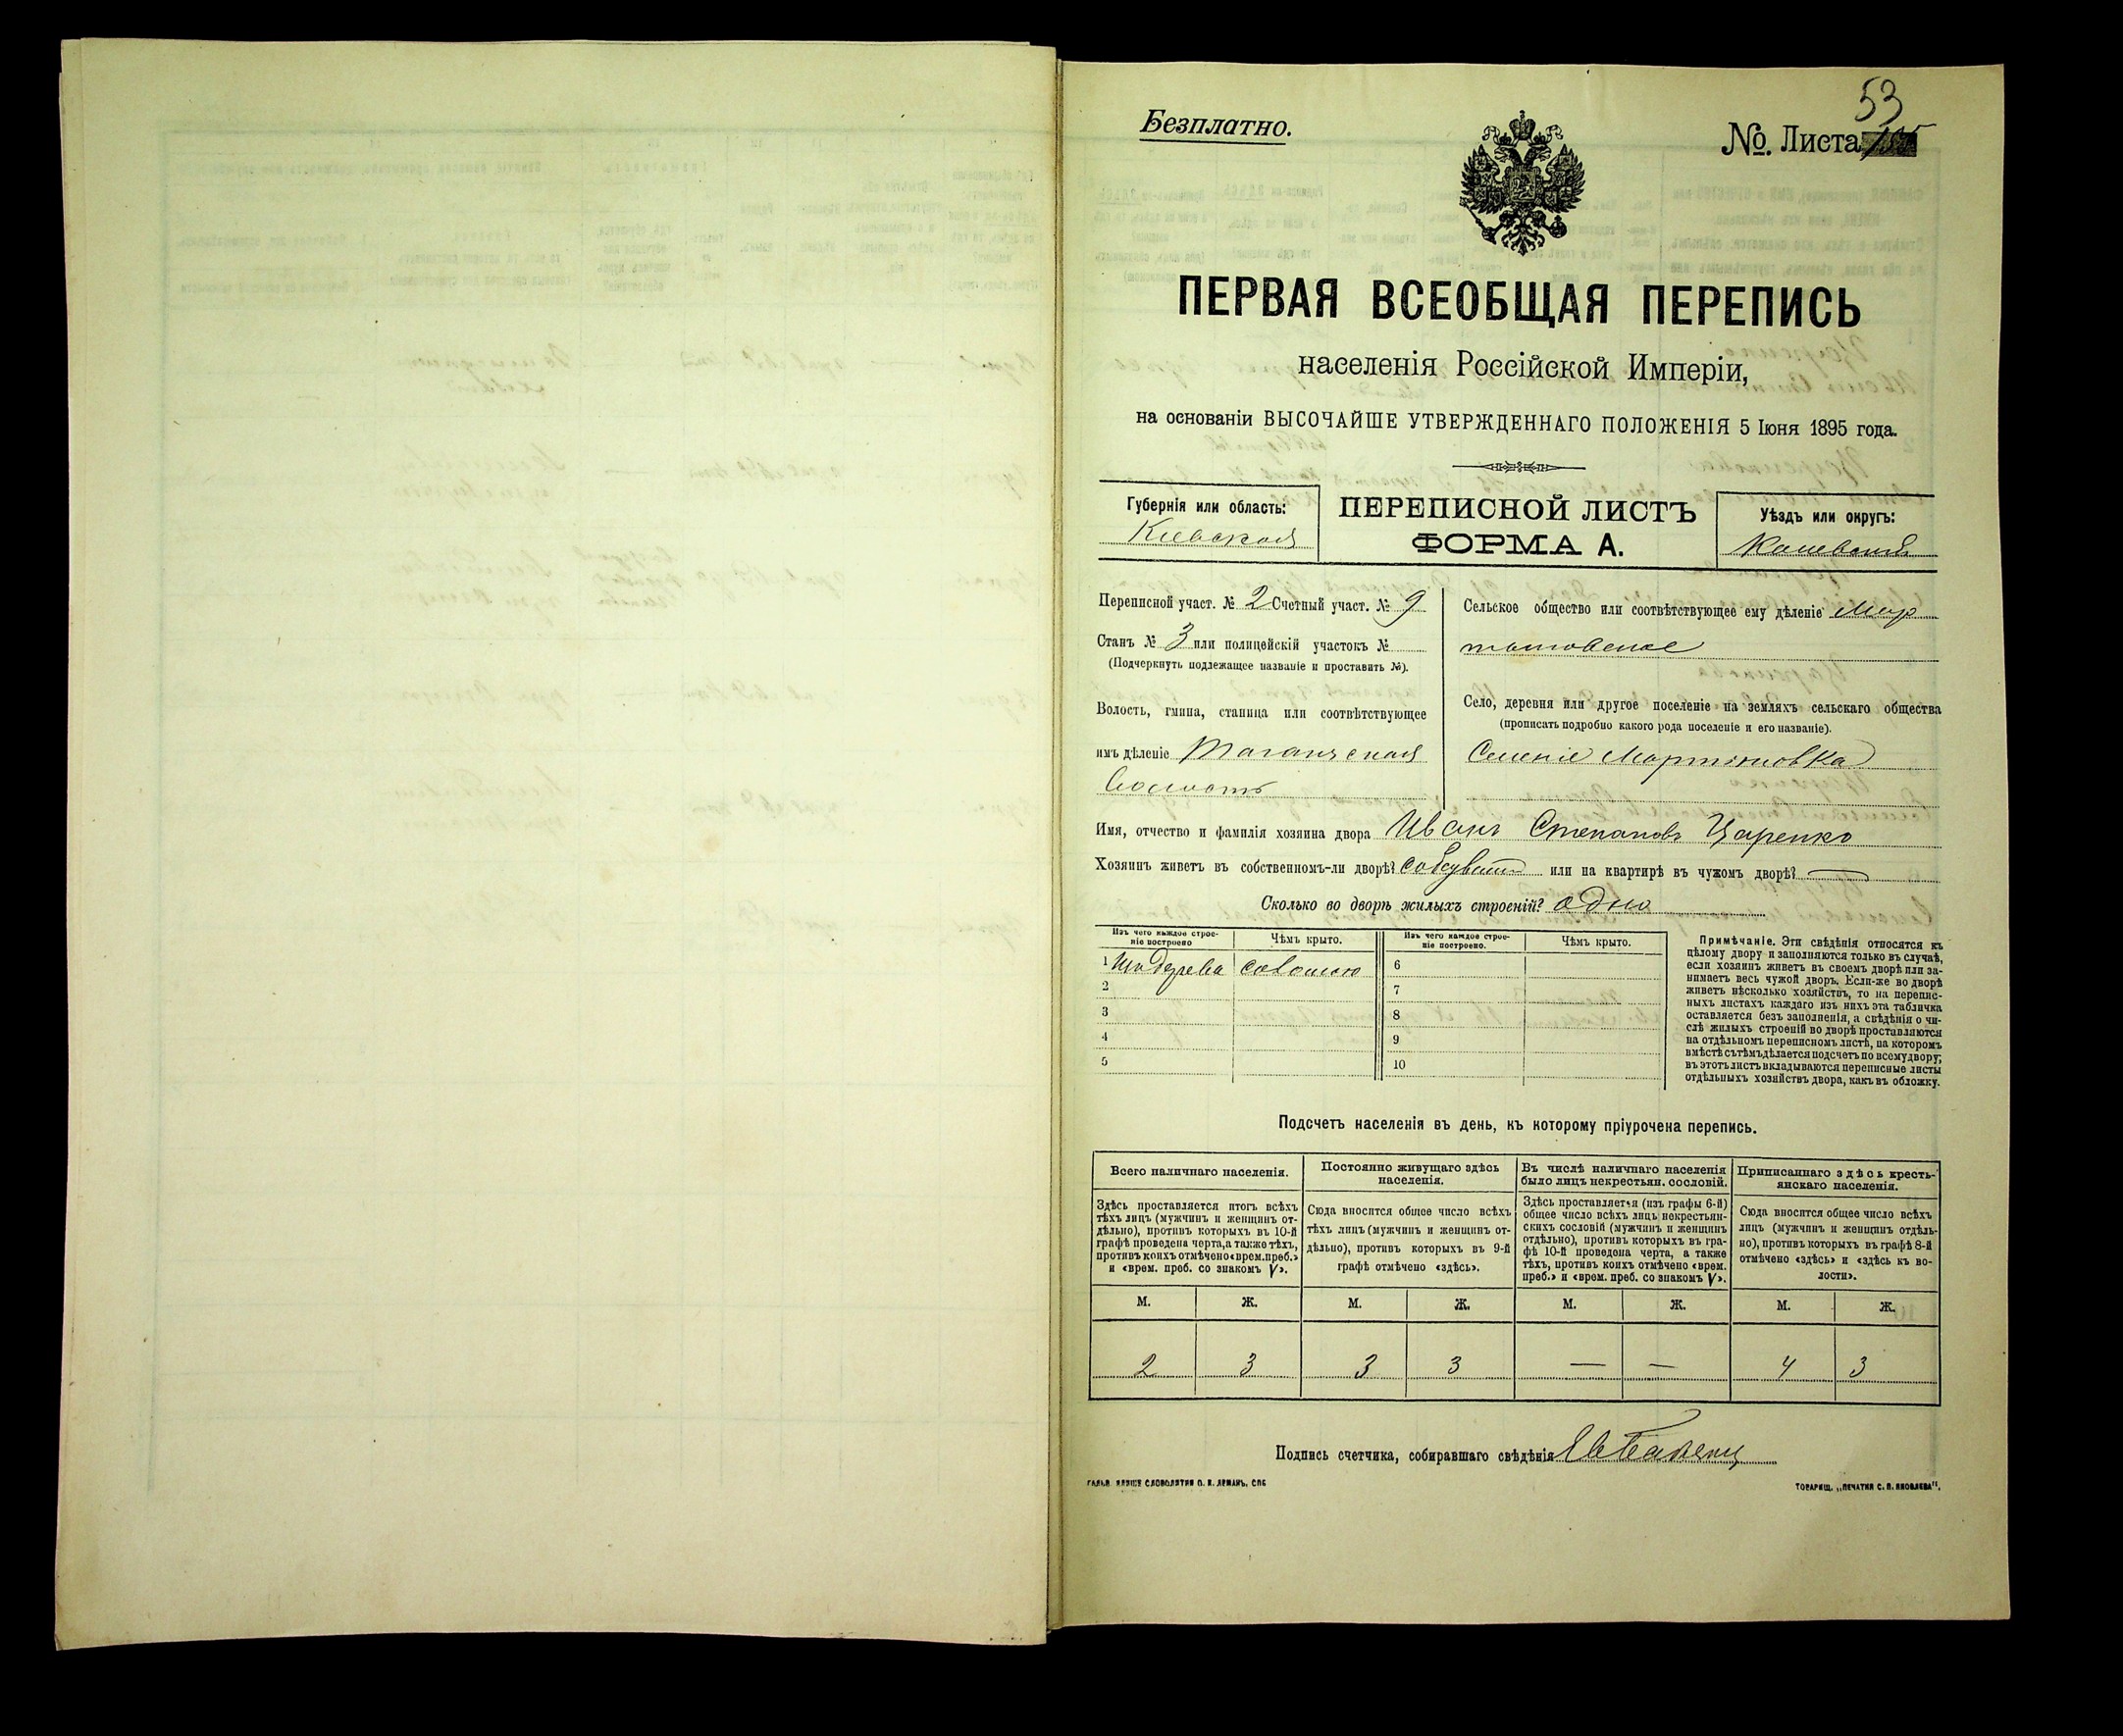 Безплатно.
53
№. Листа
ПЕРВАЯ ВСЕОБЩАЯ ПЕРЕПИСЬ
населенія Россійской Имперіи,
на основаніи ВЫСОЧАЙШЕ УТВЕРЖДЕННАГО ПОЛОЖЕНІЯ 5 Іюня 1895 года.
Губернія или область:
Кіевская
ПЕРЕПИСНОЙ ЛИСТЪ
ФОРМА А.
Уѣздъ или округъ:
Каневскій
Переписной участ. № 2 Счетный участ. № 9
Станъ № 3 или полицейскій участокъ №
(Подчеркнуть подлежащее названіе и проставить №).
Волость, гмина, станица или соотвѣтствующее
имъ дѣленіе Таганчская
Волость
Сельское общество или соотвѣтствующее ему дѣленіе Мар
тыновское
Село, деревня или другое поселеніе на земляхъ сельскаго общества
(прописать подробно какого рода поселеніе и его названіе).
Селеніе Мартыновка
Имя, отчество и фамилія хозяина двора Иванъ Степановъ Царенко
Хозяинъ живетъ въ собственномъ-ли дворѣ? или на квартирѣ въ чужомъ дворѣ? —
Сколько во дворѣ жилыхъ строеній? одно
Изъ чего каждое строе-
ніе построено
Чѣмъ крыто.
Изъ чего каждое строе-
ніе построено.
Чѣмъ крыто.
1 Изъ дерева соломою
2
3
4
5
6
7
8
9
10
Примѣчаніе. Эти свѣдѣнія относятся къ
цѣлому двору и заполняются только въ случаѣ,
если хозяинъ живетъ въ своемъ дворѣ или за-
нимаетъ весь чужой дворъ. Если-же во дворѣ
живетъ нѣсколько хозяйствъ, то на перепис-
ныхъ листахъ каждаго изъ нихъ эта табличка
оставляется безъ заполненія, а свѣдѣнія о чи-
слѣ жилыхъ строеній во дворѣ проставляются
на отдѣльномъ переписномъ листѣ, на которомъ
вмѣстѣ съ тѣмъ дѣлается подсчетъ по всему двору;
въ этотъ листъ вкладываются переписные листы
отдѣльныхъ хозяйствъ двора, какъ въ обложку.
Подсчетъ населенія въ день, къ которому пріурочена перепись.
Всего наличнаго населенія.
Здѣсь проставляется итогъ всѣхъ
тѣхъ лицъ (мужчинъ и женщинъ от-
дѣльно), противъ которыхъ въ 10-й
графѣ проведена черта, а также тѣхъ,
противъ коихъ отмѣчено «врем. преб.»
и «врем. преб. со знакомъ V».
Постоянно живущаго здѣсь
населенія.
Сюда вносится общее число всѣхъ
тѣхъ лицъ (мужчинъ и женщинъ от-
дѣльно), противъ которыхъ въ 9-й
графѣ отмѣчено «здѣсь».
Въ числѣ наличнаго населенія
было лицъ некрестьян. сословій.
Здѣсь проставляется (изъ графы 6-й)
общее число всѣхъ лицъ некрестьян-
скихъ сословій (мужчинъ и женщинъ
отдѣльно), противъ которыхъ въ гра-
фѣ 10-й проведена черта, а также
тѣхъ, противъ коихъ отмѣчено «врем.
преб.» и «врем. преб. со знакомъ V».
Приписаннаго здѣсь кресть-
янскаго населенія.
Сюда вносится общее число всѣхъ
лицъ (мужчинъ и женщинъ отдѣль-
но), противъ которыхъ въ графѣ 8-й
отмѣчено «здѣсь» и «здѣсь къ во-
лости».
М. Ж. М. Ж. М. Ж. М. Ж.
2 3 3 3 — — 4 3
Подпись счетчика, собиравшаго свѣдѣнія
ТОВАРИЩ. „ПЕЧАТНЯ С. П. ЯКОВЛЕВА".